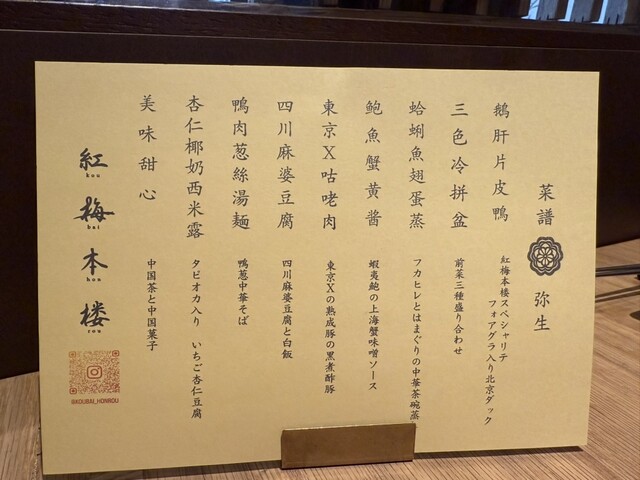 菜譜 弥生
鵝肝片皮鴨
紅梅本楼スペシャリテ
フォアグラ入り北京ダック
三色冷拼盆
前菜三種盛り合わせ
蛤蜊魚翅蛋蒸
フカヒレとはまぐりの中華茶碗蒸
鮑魚蟹黄醤
蝦夷鮑の上海蟹味噌ソース
東京X咕咾肉
東京Xの熟成豚の黒煮酢豚
四川麻婆豆腐
四川麻婆豆腐と白飯
鴨肉葱絲湯麺
鴨葱中華そば
杏仁椰奶西米露
タピオカ入り いちご杏仁豆腐
美味甜心
中国茶と中国菓子
紅
kou
梅
bai
本
hon
楼
rou
@KOUBAI_HONROU